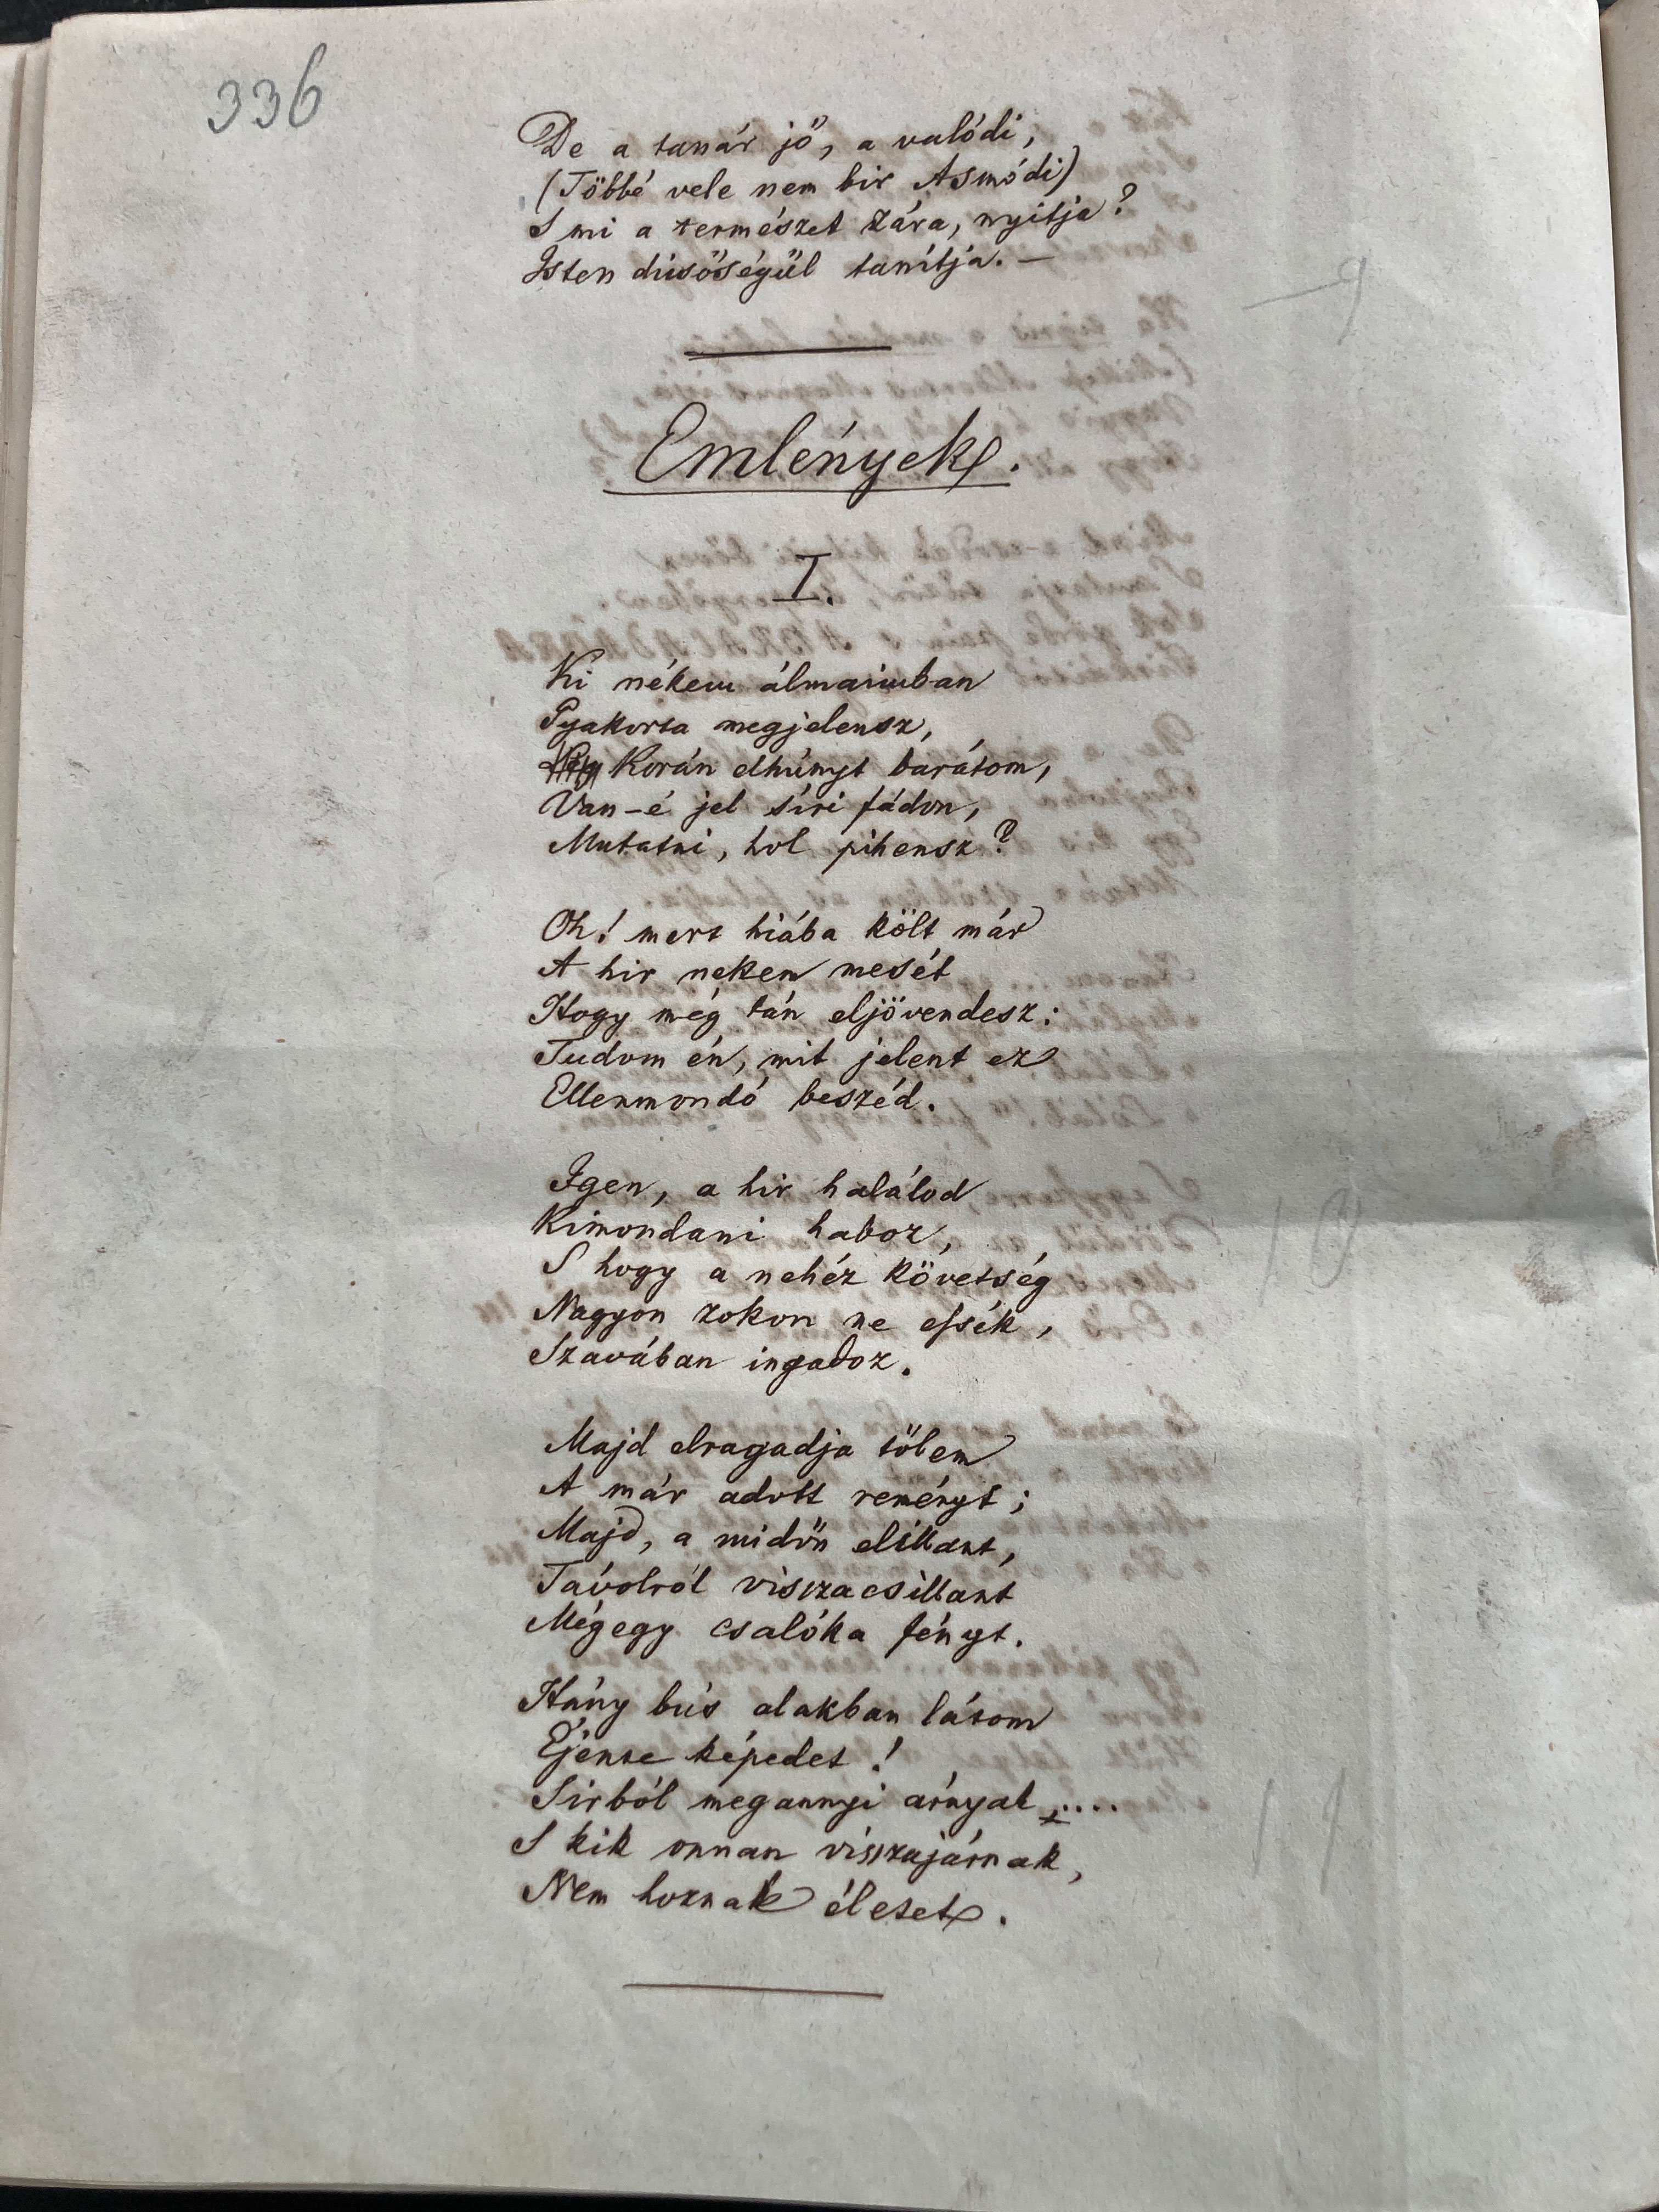 336
De a tanár jő, a valódi,
(Többé vele nem bir Asmódi)
S mi a természet zára, nyitja?
Isten dicsőségűl tanítja. —
Emlények.
I.
Ki nékem álmaimban
Gyakorta megjelensz,
Korán elhúnyt barátom,
Van-é jel síri fádon,
Mutatni, hol pihensz?
Oh! mert hiába költ már
A hir nekem mesét
Hogy még tán eljövendesz:
Tudom én, mit jelent ez
Ellenmondó beszéd.
Igen, a hir halálod
Kimondani haboz,
S hogy a nehéz követség
Nagyon zokon ne essék,
Szavában ingadoz.
Majd elragadja tőlem
A már adott reményt;
Majd, a midőn elillant,
Távolról visszacsillant
Mégegy csalóka fényt.
Hány bús alakban látom
Éjente képedet!
Sirból megannyi árnyak....
S kik onnan visszajárnak,
Nem hoznak életet.
9
10
11